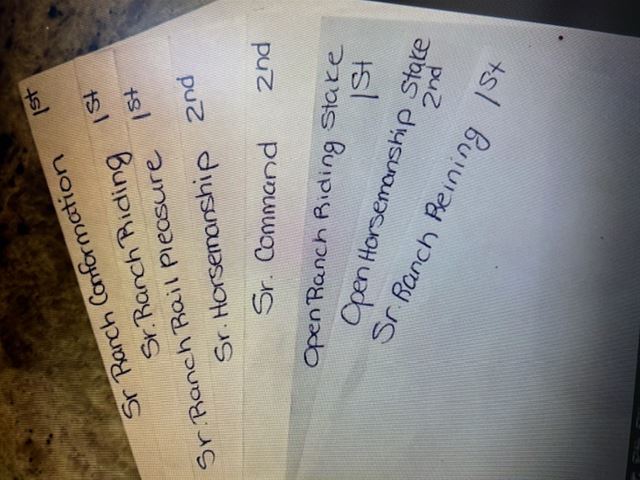 Sr Ranch Conformation 1st
Sr. Ranch Riding 1st
Sr. Ranch Rail Pleasure 1st
Sr. Horsemanship 2nd
Sr. Command 2nd
Open Ranch Riding Stake
1St
Open Horsemanship Stake
2nd
Sr Ranch Reining 1St